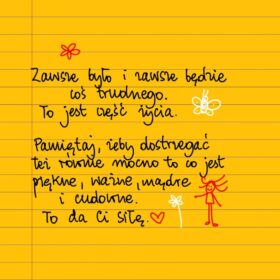 Zawsze było i zawsze będzie
coś trudnego.
To jest część życia.
Pamiętaj, żeby dostrzegać
też równie mocno to co jest
piękne, ważne, mądre
i cudowne.
To da Ci siłę.